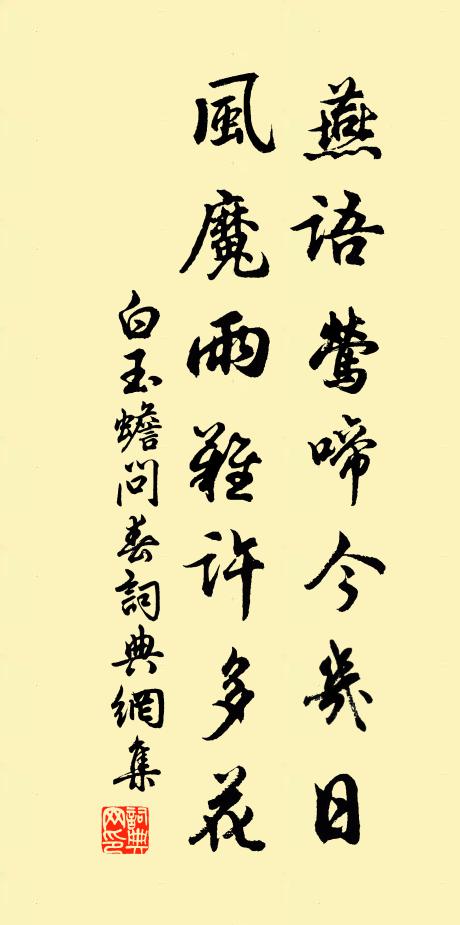 燕語鶯啼今幾日
風魔雨難許多花
白玉蟾問春詞典網集
詞典網印